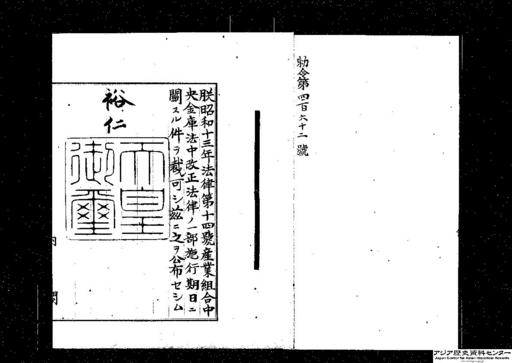 勅令第四百六十二號
朕昭和十三年法律第十四號産業組合中
央金庫法中改正法律ノ一部施行期日ニ
關スル件ヲ裁可シ茲ニ之ヲ公布セシム
裕仁
天皇
御璽
内
閣
アジア歴史資料センター
Japan Center for Asian Historical Records